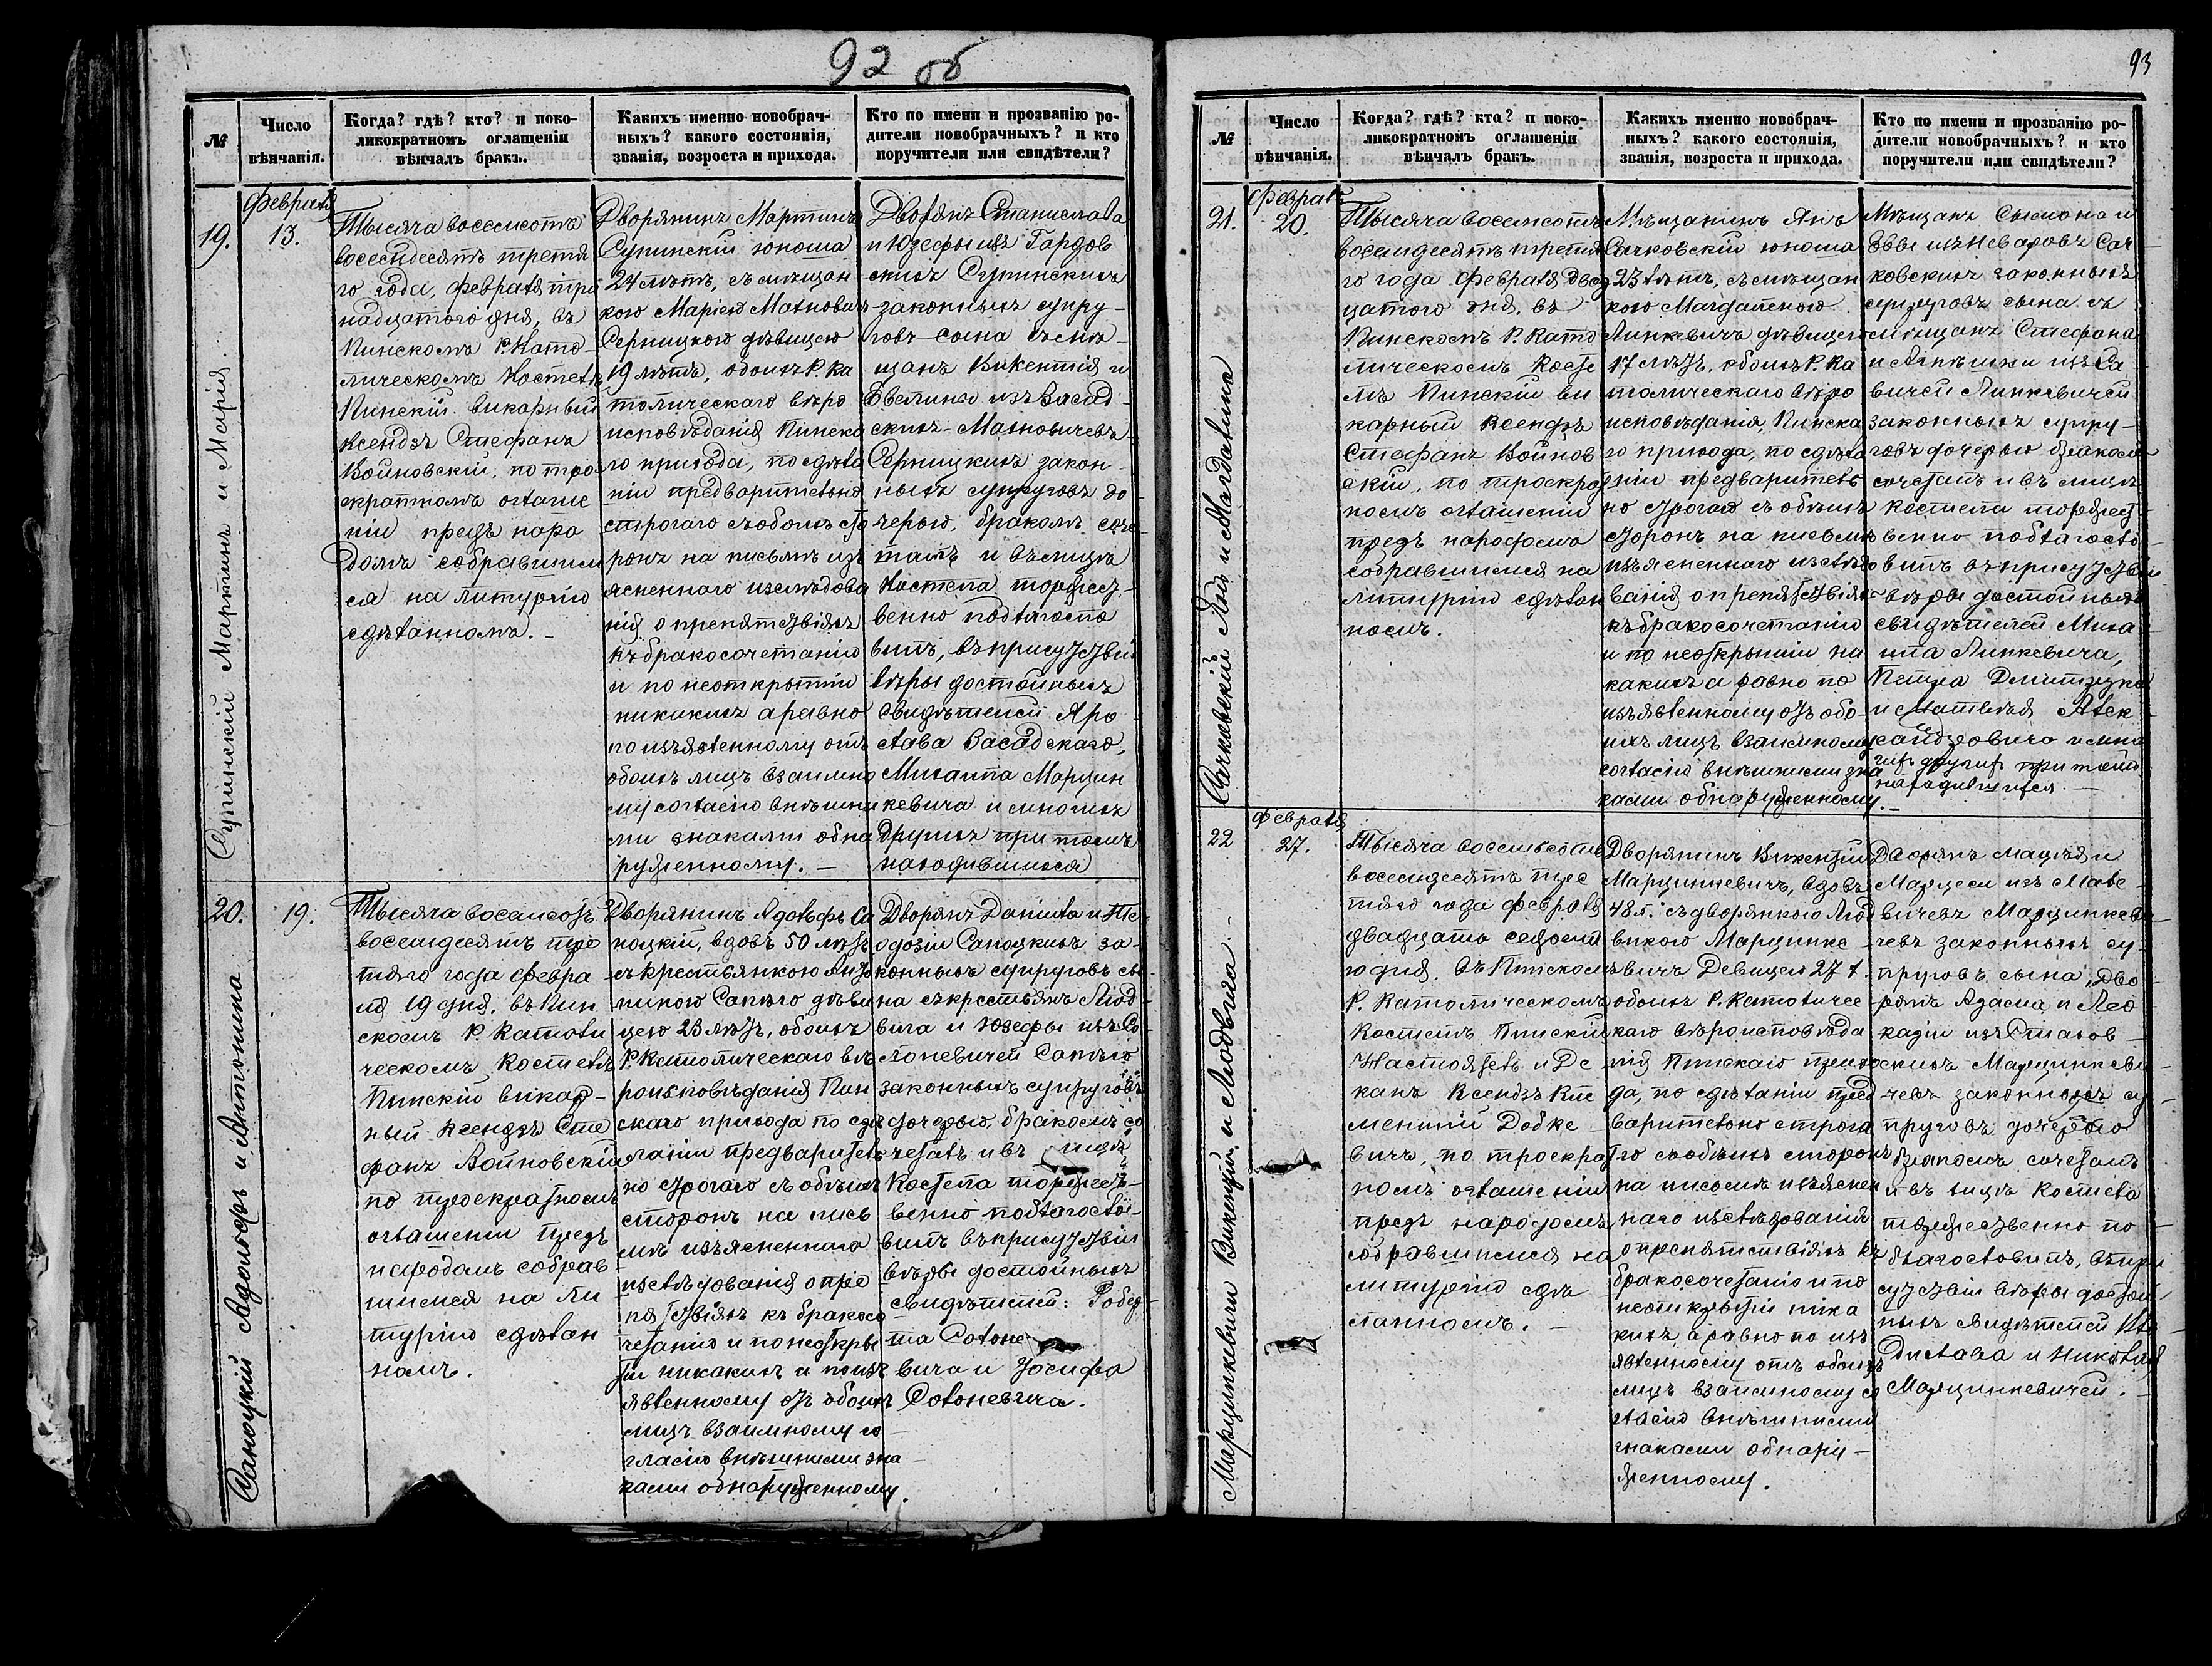 92 об
№
Число
вѣнчанія.
Когда? гдѣ? кто? и поко-
ликократномъ оглашеніи
вѣнчалъ бракъ.
Какихъ именно новобрач-
ныхъ? какого состоянія,
званія, возроста и прихода.
Кто по имени и прозванію ро-
дители новобрачныхъ? и кто
поручители или свидѣтели?
19.
Февраля
13.
Мартинъ и Марія
Тысяча восемсотъ
восемдесятъ третя
го года, февраля три
надцатого дня, въ
Пинскомъ Р. Като-
лическомъ Костелѣ
Пинскій викарный
Ксендзъ Стефанъ
Войновскій, по тро
екратномъ оглаше
ніи предъ наро
домъ собравшим
ся на литургію
сдѣланномъ. -
Дворянинъ Мартинъ
юноша
24 лѣтъ, съ мѣщан
кою Маріею Махновичъ
Серницкою дѣвицею
19 лѣтъ, обоихъ Р. Ка
толическаго вѣро
исповѣданія Пинска
го прихода, по сдѣла
ніи предварительно
строгаго съ обоихъ сто
ронъ на письмѣ изъ
ясненнаго изслѣдова
нія о препятствіяхъ
къ бракосочетанію
и по неоткрытіи
никакихъ а равно
по изъявленному отъ
обоихъ лицъ взаимно
му согласію внѣшни
ми знаками обна
руженному. -
Дворянъ Станислава
и Юзефы изъ Гардов
скихъ
законныхъ супру-
говъ сына съ мѣ-
щанъ Викентія и
Эвелины изъ Засад-
скихъ - Махновичевъ
Серницкихъ закон-
ныхъ супруговъ до-
черью, бракомъ соче
талъ и въ лицѣ
Костела торжест-
венно поблагосло
вилъ, въ присутствіи
вѣры достойныхъ
свидѣтелей Яро-
слава Засадскаго,
Михаила Марцин
кевича и многихъ
другихъ при томъ
находившихся
20.
19.
Саноцкій Адольфъ и Антонина
Тысяча восемсотъ
восемдесятъ тре
тяго года февра
ля 19 дня, въ Пин
скомъ Р. Католи
ческомъ Костелѣ
Пинскій викар-
ный Ксендзъ Сте
фанъ Войновскій
по троекратномъ
оглашеніи предъ
народомъ собрав
шимся на ли
тургію сдѣлан
номъ.
Дворянинъ Адольфъ Са
ноцкій, вдовъ 50 лѣтъ
съ крестьянкою Анто
ниною дѣви
цею 23 лѣтъ, обоихъ
Р. Католическаго вѣ
роисповѣданія Пин
скаго прихода по сдѣ
ланіи предваритель
но строгаго съ обѣихъ
сторонъ на пись
мѣ изъясненнаго
изслѣдованія о пре
пятствіяхъ къ бракосо
четанію и по неоткры
тіи никакихъ и по изъ
явленному отъ обоихъ
лицъ взаимному со-
гласію внѣшними зна-
ками обнаруженному.
Дворянъ Даніила и Те
одозіи Саноцкихъ за-
конныхъ супруговъ сы
на съ крестьянъ Люд-
вига и Юзефы изъ Со-
лоневичей
законныхъ супруговъ
дочерью, бракомъ со
четалъ и въ лицѣ
Костела торжест-
венно поблагосло-
вилъ въ присутствіи
вѣры достойныхъ
свидѣтелей: Робер-
та Солоне
вича и Іосифа
Солоневича.
93
№
Число
вѣнчанія.
Когда? гдѣ? кто? и поко-
ликократномъ оглашеніи
вѣнчалъ бракъ.
Какихъ именно новобрач-
ныхъ? какого состоянія,
званія, возроста и прихода.
Кто по имени и прозванію ро-
дители новобрачныхъ? и кто
поручители или свидѣтели?
21.
Февраля
20.
Сачковскій Янъ и Магдалина
Тысяча восемсотъ
восемдесятъ третя
го года февраля двад
цатого дня, въ
Пинскомъ Р. Като
лическомъ Косте
лѣ Пинскій ви
карный Ксендзъ
Стефанъ Войнов
скій, по троекрат
номъ оглашеніи
предъ народомъ
собравшимся на
литургію сдѣлан
номъ.
Мѣщанинъ Янъ
Сачковскій юноша
23 лѣтъ, съ мѣщан
кою Магдаленою
Линкевичъ дѣвицею
17 лѣтъ, обоихъ Р. Ка
толическаго вѣро
исповѣданія, Пинска
го прихода, по сдѣла
ніи предваритель
но строгаго съ обѣихъ
сторонъ на письмѣ
изъясненнаго изслѣдо
ванія о препятствіяхъ
къ бракосочетанію
и по неоткрытіи ни
какихъ а равно по
изъявленному отъ обо-
ихъ лицъ взаимному
согласію внѣшними зна
ками обнаруженному. -
Мѣщанъ Сымона и
Эвы изъ Неваровъ Сач
ковскихъ законныхъ
супруговъ сына съ
мѣщанъ Стефана
и Агнѣшки изъ Са
вичей Линкевичей
законныхъ супру-
говъ дочерью бракомъ
сочеталъ и въ лицѣ
Костела торжест
венно поблагосло-
вилъ въ присутствіи
вѣры достойныхъ
свидѣтелей Миха
ила Линкевича,
Петра
и Матвѣя Алек
сандровича и мно
гихъ другихъ при томъ
находившихся. -
22
Февраля
27.
Марцинкевичи Викентій и Людвига
Тысяча восемьсотъ
восемдесятъ тре
тяго года февраля
двадцать седьмо
го дня, въ Пинскомъ
Р. Католическомъ
Костелѣ Пинскій
Настоятель и Де
канъ Ксендзъ Кле
ментій Добке
вичъ, по троекрат
номъ оглашеніи
предъ народомъ
собравшимся на
литургію сдѣ
ланномъ. -
Дворянинъ Викентій
Марцинкевичъ, вдовъ
48 л. съ дворянкою Люд
викою Марцинке
вичъ Девицею 27 л.
обоихъ Р. Католичес
каго вѣроисповѣда
нія Пинскаго прихо
да, по сдѣланіи пред
варительно строга
го съ обѣихъ сторонъ
на письмѣ изъяснен
наго изслѣдованія
о препятствіяхъ къ
бракосочетанію и по
неоткрытіи ника
кихъ а равно по изъ
явленному отъ обоихъ
лицъ взаимному со
гласію внѣшними
знаками обнару-
женному.
Дворянъ Мацѣя и
изъ Маве-
вичевъ Марцинкеви-
чевъ законныхъ су-
пруговъ сына, Дво-
рянъ Адама и Лео
кадіи изъ
скихъ Марцинкеви-
чевъ законныхъ су-
пруговъ дочерью
бракомъ сочеталъ
и въ лицѣ Костела
торжественно по-
благословилъ, въ при
сутствіи вѣры достой-
ныхъ свидѣтелей Вла-
дислава и Николая
Марцинкевичей. -